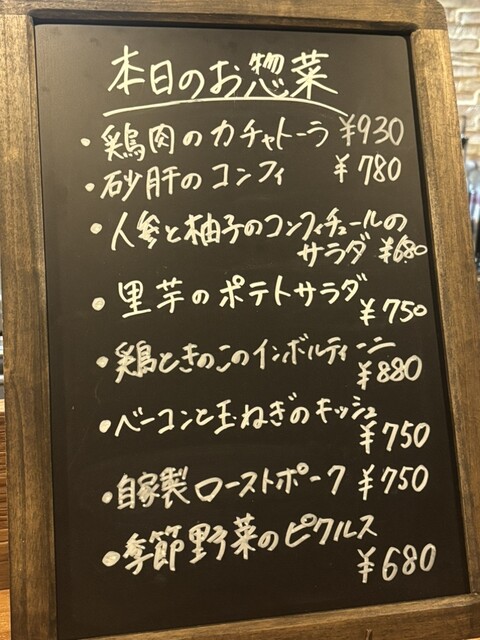 本日のお惣菜
・鶏肉のカチャトーラ ¥930
・砂肝のコンフィ ¥780
・人参と柚子のコンフィチュールの
サラダ ¥680
・里芋のポテトサラダ
¥750
・鶏ときのこのインボルティーニ
¥880
・ベーコンと玉ねぎのキッシュ
¥750
・自家製ローストポーク ¥750
・季節野菜のピクルス
¥680